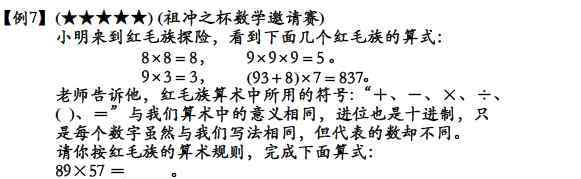 【例7】(★★★★★)(祖冲之杯数学邀请赛)
小明来到红毛族探险，看到下面几个红毛族的算式：
8×8=8， 9×9×9=5。
9×3=3， (93+8)×7=837。
老师告诉他，红毛族算术中所用的符号：“＋、－、×、÷、
( )、＝”与我们算术中的意义相同，进位也是十进制，只
是每个数字虽然与我们写法相同，但代表的数却不同。
请你按红毛族的算术规则，完成下面算式：
89×57=_____。